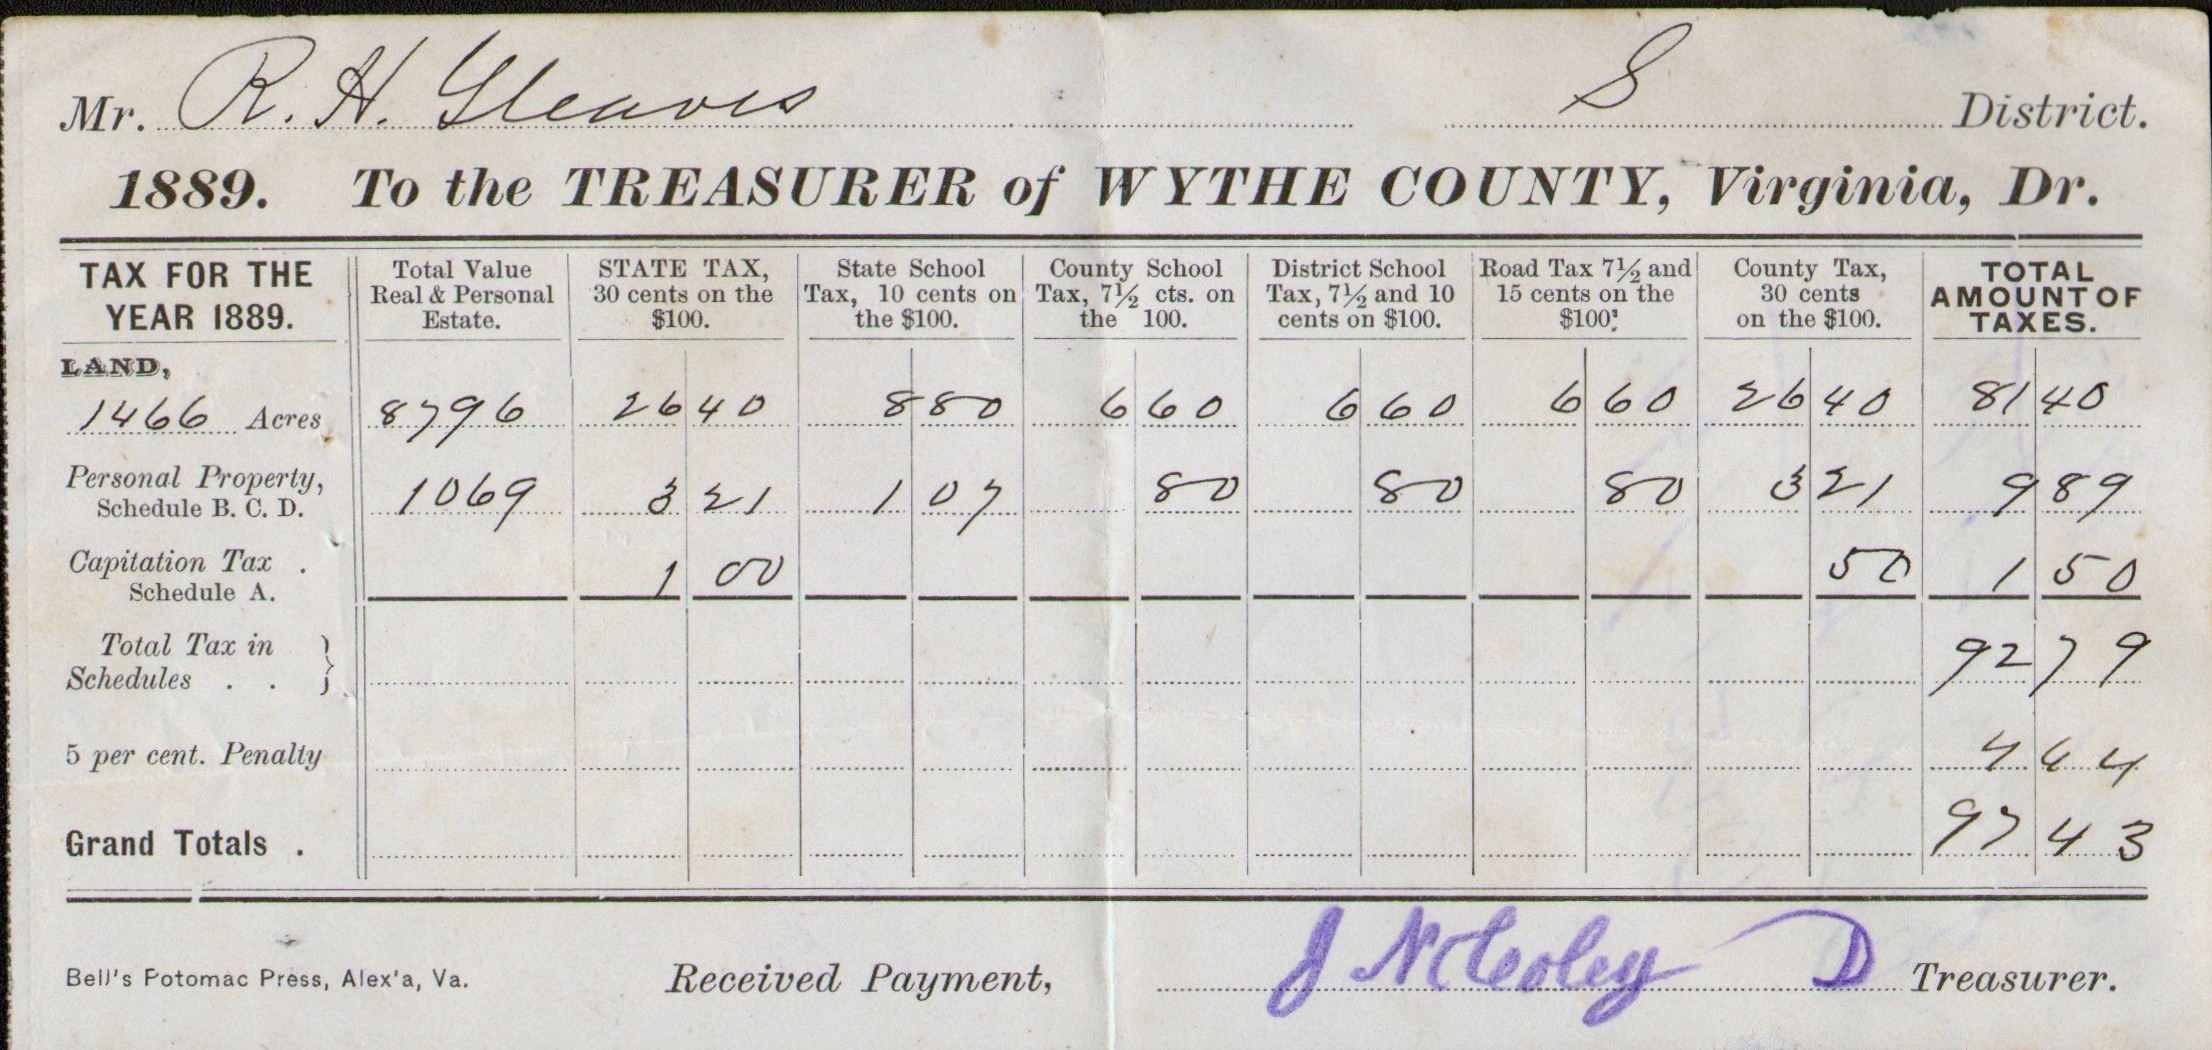 Mr. R. H. Gleaves S District.
1889. To the TREASURER of WYTHE COUNTY, Virginia, Dr.
TAX FOR THE YEAR 1889. Total Value Real & Personal Estate. STATE TAX, 30 cents on the $100. State School Tax, 10 cents on the $100. County School Tax, 7½ cts. on the 100. District School Tax, 7½ and 10 cents on $100. Road Tax 7½ and 15 cents on the $100. County Tax, 30 cents on the $100. TOTAL AMOUNT OF TAXES.
LAND,
1466 Acres 8796 26 40 8 80 6 60 6 60 6 60 26 40 81 40
Personal Property, Schedule B. C. D. 1069 3 21 1 07 80 80 80 3 21 9 89
Capitation Tax . Schedule A. 1 00 50 1 50
Total Tax in Schedules . . } 92 79
5 per cent. Penalty 4 64
Grand Totals . 97 43
Bell's Potomac Press, Alex'a, Va. Received Payment, J N Cooley D Treasurer.